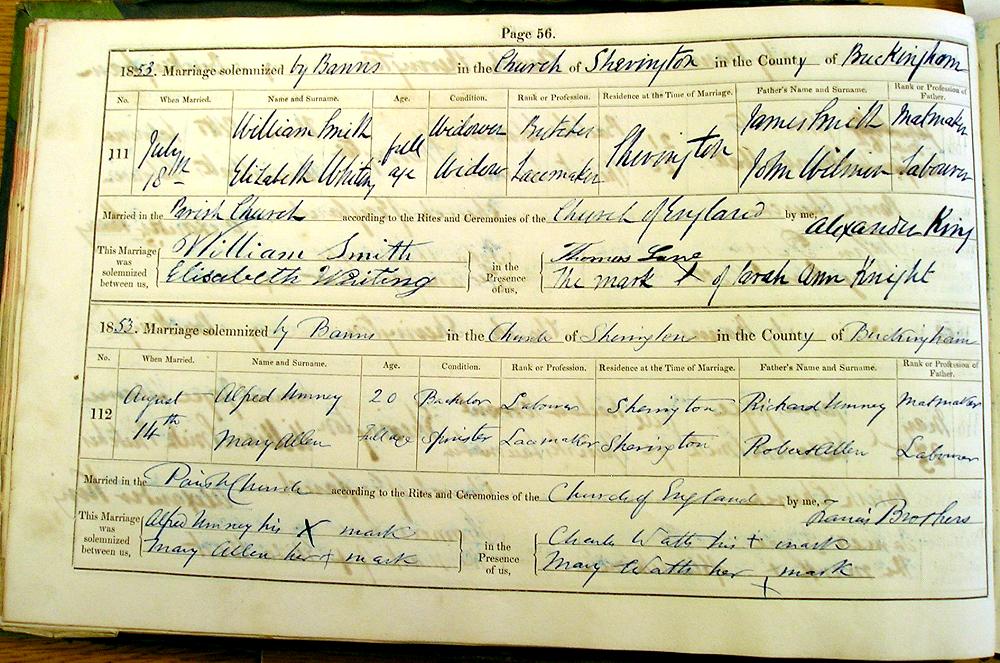 Page 56.
1853. Marriage solemnized by Banns in the Church of Sherington in the County of Buckingham
No. When Married. Name and Surname. Age. Condition. Rank or Profession. Residence at the Time of Marriage. Father's Name and Surname. Rank or Profession of Father.
William Smith Widower Butcher James Smith Matmaker
111 July 18th full age Sherington
Elizabeth Whiting Widow Lacemaker John Wilmer Labourer
Married in the Parish Church according to the Rites and Ceremonies of the Church of England by me, Alexander King
This Marriage was solemnized between us, William Smith in the Presence of us, Thomas Lane
Elisabeth Whiting The mark X of Sarah Ann Knight
1853. Marriage solemnized by Banns in the Church of Sherington in the County of Buckingham
No. When Married. Name and Surname. Age. Condition. Rank or Profession. Residence at the Time of Marriage. Father's Name and Surname. Rank or Profession of Father.
112 August 14th Alfred Umney 20 Bachelor Labourer Sherington Richard Umney Matmaker
Mary Allen Full age Spinster Lacemaker Sherington Robert Allen Labourer
Married in the Parish Church according to the Rites and Ceremonies of the Church of England by me, Francis Brothers
This Marriage was solemnized between us, Alfred Umney his X mark in the Presence of us, Charles Watts his + mark
Mary Allen her + mark Mary Watts her + mark